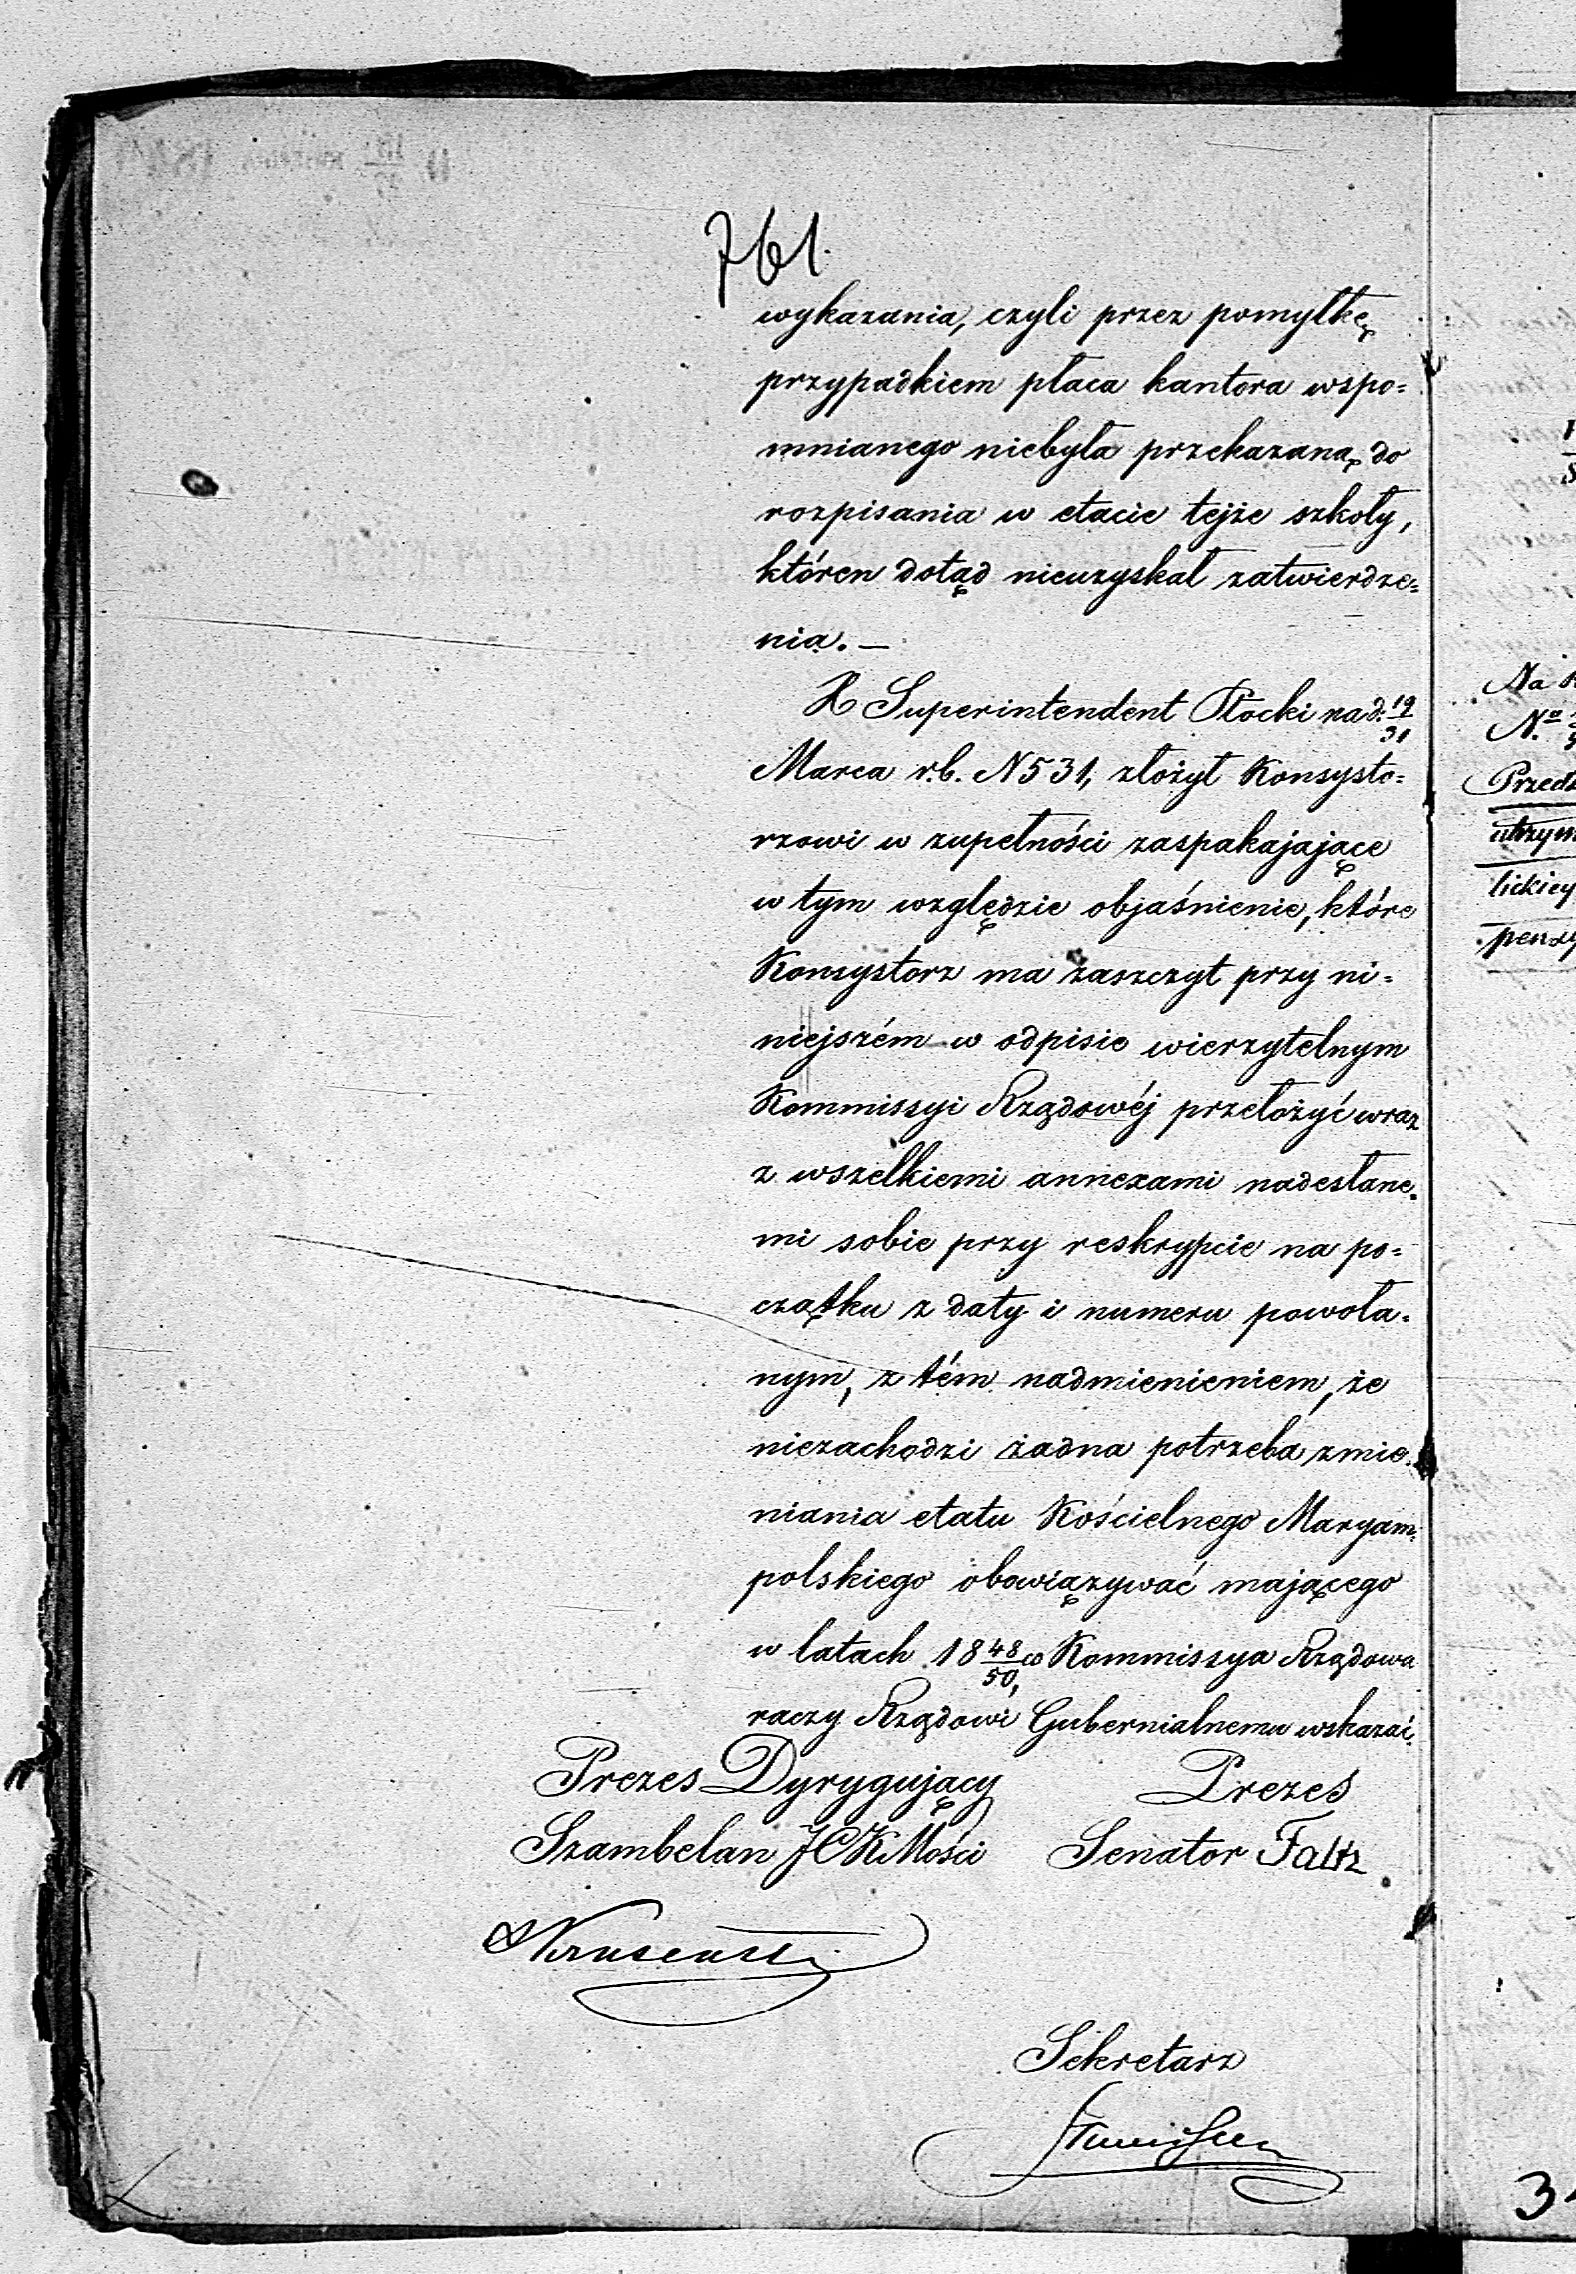 761.
wykazania, czyli przez pomyłkę
przypadkiem płaca kantora wspo=
mnianego niebyła przekazaną do
rozpisania w etacie tejże szkoły,
któren dotąd nieuzyskał zatwierdze=
nia. —
X Superintendent Płocki na d: 19/31
Marca r.b. N 531, złożył Konsysto=
rzowi w zupełności zaspakajające
w tym względzie objaśnienie, które
Konsystorz ma zaszczyt przy ni=
niejszém w odpisie wierzytelnym
Kommissyi Rządowéj przełożyć wraz
z wszelkiemi annexami nadesłane=
mi sobie przy reskrypcie na po=
czątku z daty i numeru powoła=
nym, z tém nadmienieniem, że
niezachodzi żadna potrzeba zmie=
niania etatu Kościelnego Maryam=
polskiego obowiązywać mającego
w latach 1848/50, co Kommissya Rządowa
raczy Rządowi Gubernialnemu wskazać.
Prezes Dyrygujący
Szambelan JCKMości
Prezes
Senator Faltz
Sekretarz
Na
N.o
Przed
utrzym
lickiey
pensy
3